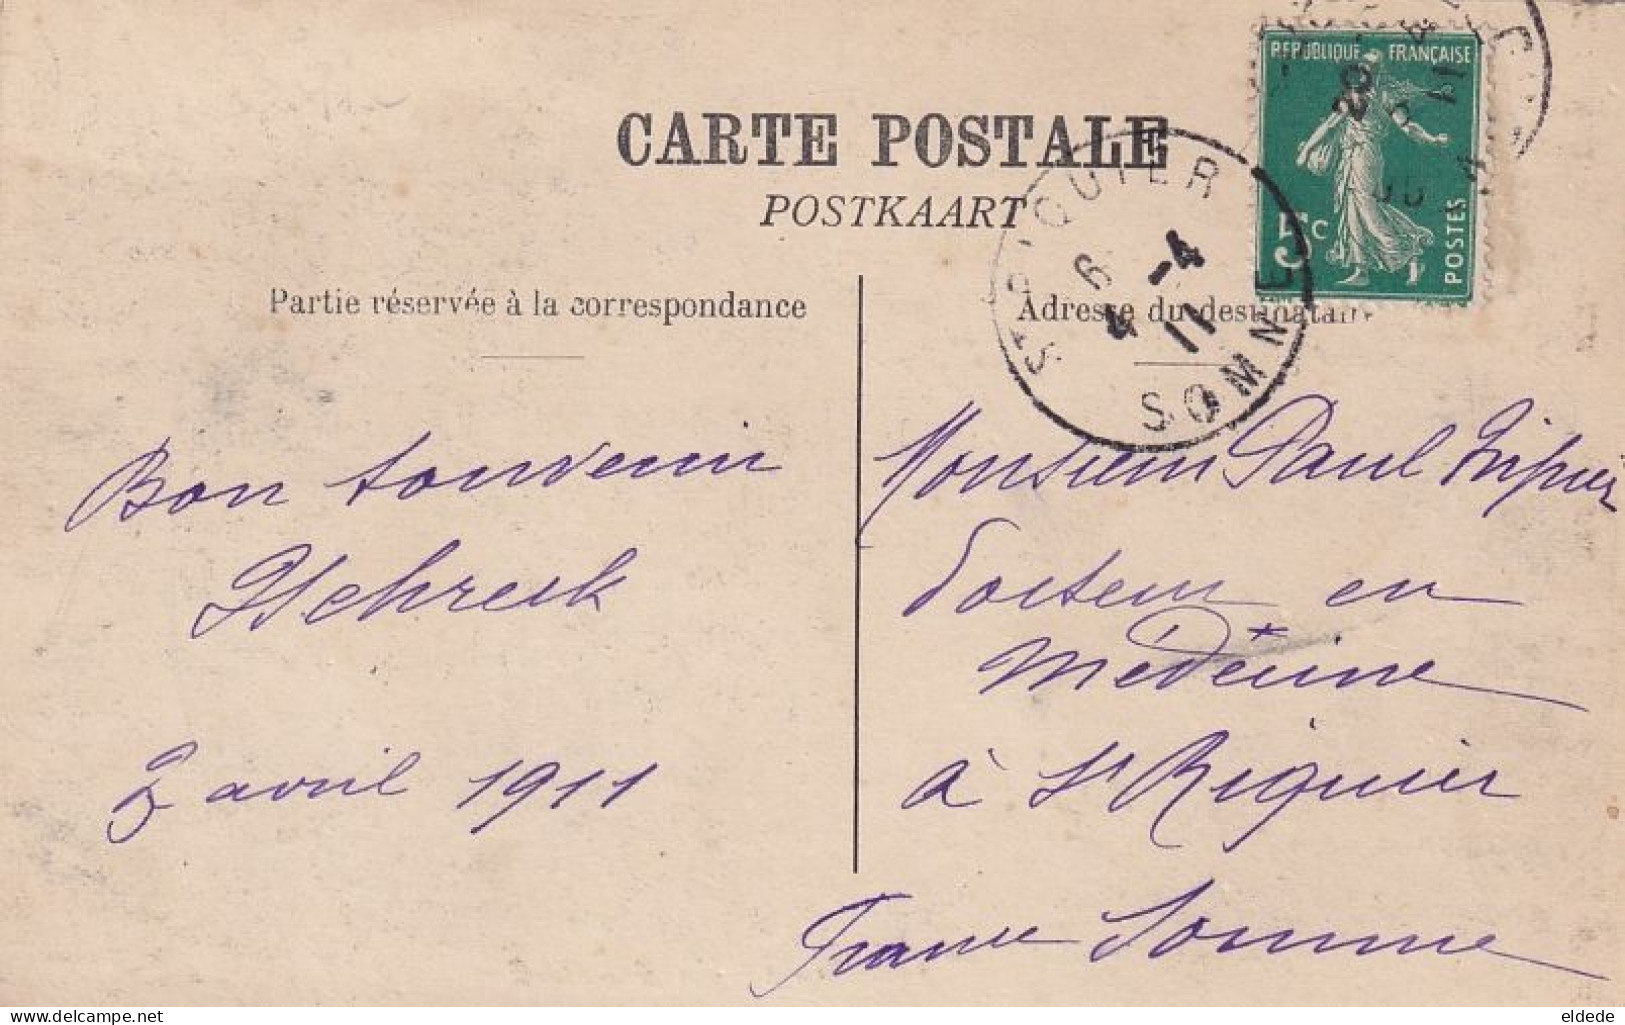 CARTE POSTALE
POSTKAART
Partie réservée à la correspondance
Adresse du destinatair
REPUBLIQUE FRANÇAISE
5c
POSTES
ST RIQUIER
6 -4
4 11
SOMME
Bon souvenir
3 avril 1911
Monsieur Paul
Docteur en
Médecine
à St Riquier
France Somme
delcampe.net
eldede